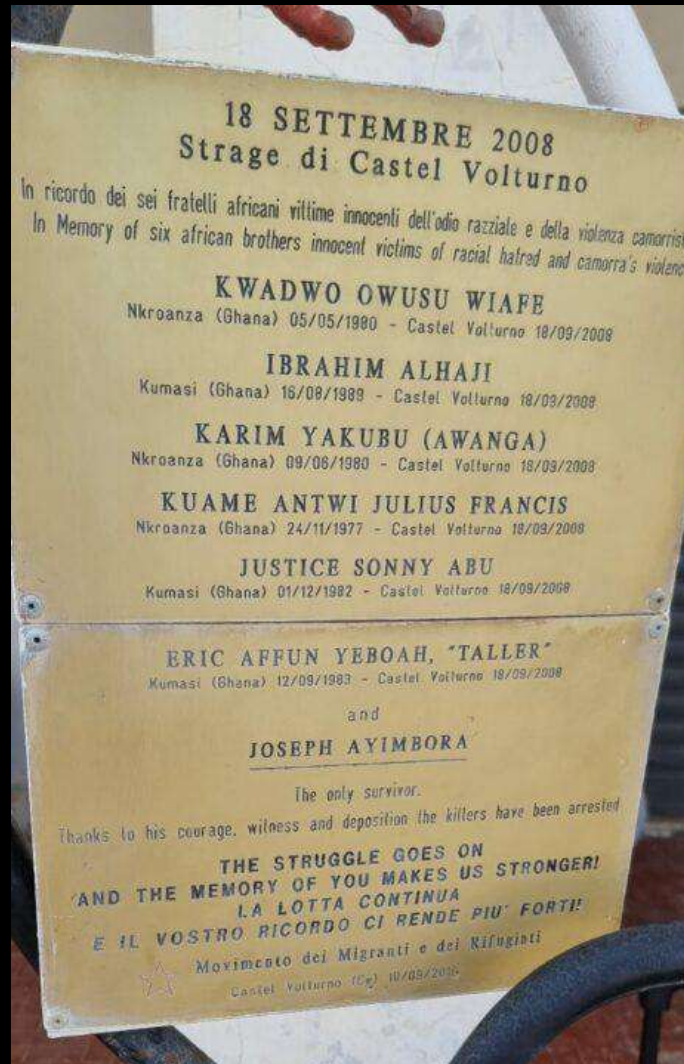 18 SETTEMBRE 2008
Strage di Castel Volturno
In ricordo dei sei fratelli africani vittime innocenti dell'odio razziale e della violenza camorrist
In Memory of six african brothers innocent victims of racial hatred and camorra's violenc
KWADWO OWUSU WIAFE
Nkroanza (Ghana) 05/05/1980 - Castel Volturno 18/09/2008
IBRAHIM ALHAJI
Kumasi (Ghana) 16/08/1989 - Castel Volturno 18/09/2008
KARIM YAKUBU (AWANGA)
Nkroanza (Ghana) 09/06/1980 - Castel Volturno 18/09/2008
KUAME ANTWI JULIUS FRANCIS
Nkroanza (Ghana) 24/11/1977 - Castel Volturno 18/09/2008
JUSTICE SONNY ABU
Kumasi (Ghana) 01/12/1982 - Castel Volturno 18/09/2008
ERIC AFFUN YEBOAH, "TALLER"
Kumasi (Ghana) 12/09/1983 - Castel Volturno 18/09/2008
and
JOSEPH AYIMBORA
The only survivor.
Thanks to his courage, witness and deposition the killers have been arrested
THE STRUGGLE GOES ON
AND THE MEMORY OF YOU MAKES US STRONGER!
LA LOTTA CONTINUA
E IL VOSTRO RICORDO CI RENDE PIU' FORTI!
Movimento dei Migranti e dei Rifugiati
Castel Volturno (Ce)